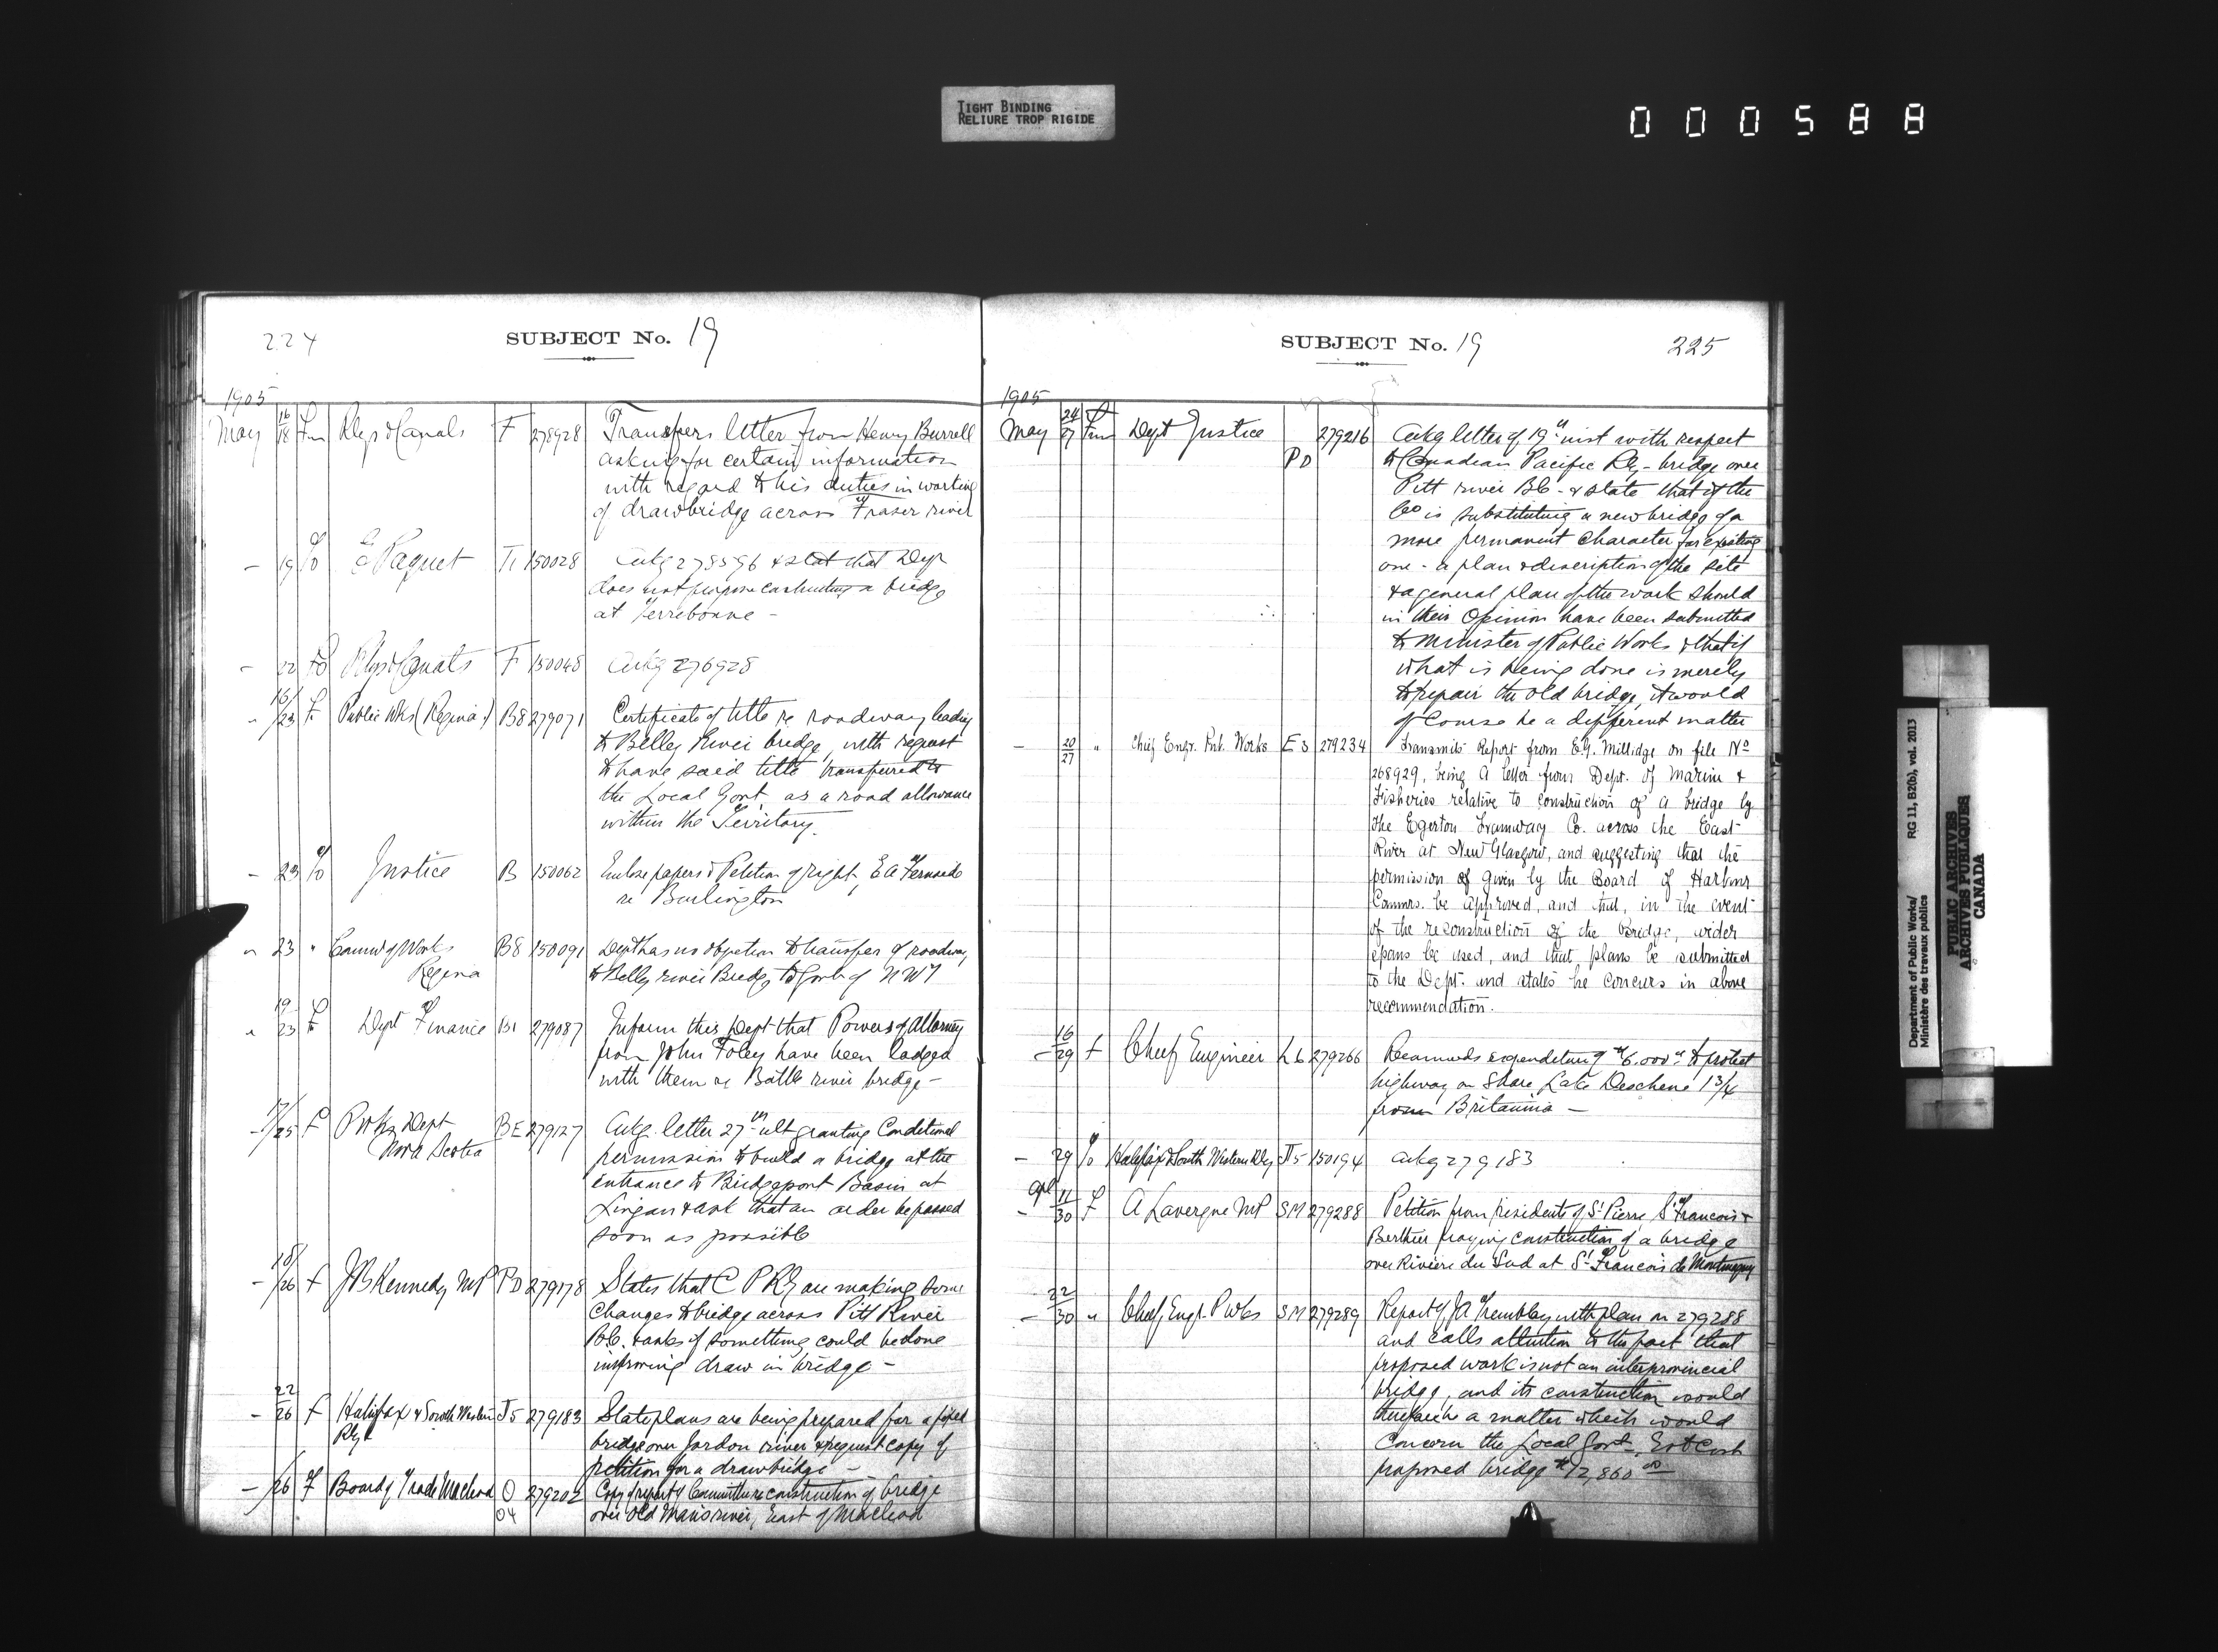 TIGHT BINDING
RELIURE TROP RIGIDE
000588
224
SUBJECT No. 19
1905
May 16/18 Fm Rlys & Canals F 278928 Transfers letter from Henry Burrell
asking for certain information
with regard to his duties in working
of drawbridge across Fraser river
— 19 To E Paquet T1 150028 Ackg 278596 & stat that Dept
does not propose constructing a bridge
at Terrebonne —
— 22 To Rlys & Canals F 150048 Ackg 276928
" 16/23 F Public Wks (Regina) B8 279071 Certificate of title re roadway leading
to Belley River bridge, with request
to have said title transferred to
the Local Govt. as a road allowance
within the Territory.
— 23 To Justice B 150062 Enclose papers & Petition of right, E A
re Burlington
" 23 " Comr of Works
Regina B8 150091 Dept has no objection to transfer of roadway
to Belly river Bridge to Govt of NWT
" 19/23 F Dept Finance B1 279087 Inform this Dept that Powers of Attorney
from John Foley have been lodged
with them re Battle river bridge —
— 17/25 F P Wks Dept
Nova Scotia BE 279127 Ackg. letter 27th ult granting Conditional
permission to build a bridge at the
entrance to Bridgeport Basin at
Lingan & ask that an order be passed
soon as possible
— 18/26 F J B Kennedy MP PD 279178 States that C P Rly are making some
changes to bridge across Pitt River
B.C. & asks if something could be done
improving draw in bridge —
— 22/26 F Halifax & South Western
Rly J5 279183 State plans are being prepared for a fixed
bridge over Jordon river & request copy of
petition for a drawbridge —
— /26 F Board of Trade Macleod O
04 279202 Copy of report of Committee re construction of bridge
over Old Mans river, East of Macleod
SUBJECT No. 19
225
1905
May 24/27 Fm Dept Justice PD 279216 Ackg letter of 19th inst with respect
to Canadian Pacific Rly - bridge over
Pitt river BC - & state that if the
Co is substituting a new bridge of a
more permanent character for existing
one - a plan & discription of the site
& a general plan of the work should
in their Opinion have been submitted
to Minister of Public Works & that if
what is being done is merely
to repair the old bridge, it would
of Course be a different matter
— 20/27 " Chief Engr. Pub. Works E3 279234 Transmits Report from E.G. Millidge on file No
268929, being a letter from Dept. of Marine &
Fisheries relative to construction of a bridge by
the Egerton Tramway Co. across the East
River at New Glasgow, and suggesting that the
permission of given by the Board of Harbour
Commrs. be approved, and that, in the event
of the reconstruction of the bridge, wider
spans be used, and that plans be submitted
to the Dept. and states he concurs in above
recommendation.
— 16/29 F Chief Engineer L6 279266 Recommds expenditure of $6.000 to protect
highway on Shore Lake Deschene 1 3/4
from Britannia —
— 29 To Halifax & South Western Rly J5 150194 Ackg 279183
— 11/30 F A Lavergne MP SM 279288 Petition from residents of St Pierre, St Francois &
Berthier praying construction of a bridge
over Riviere du Sud at St Francois de Montmagny
— 22/30 " Chief Engr. P Wks SM 279289 Report of J A Tremblay with plan on 279288
and calls attention to the fact that
proposed work is not an interprovincial
bridge, and its construction would
therefore be a matter which would
concern the Local Govt. Est Cost
proposed bridge $12,860.00
Department of Public Works/ RG 11, B2(b), vol. 2013
Ministère des travaux publics
PUBLIC ARCHIVES
ARCHIVES PUBLIQUES
CANADA